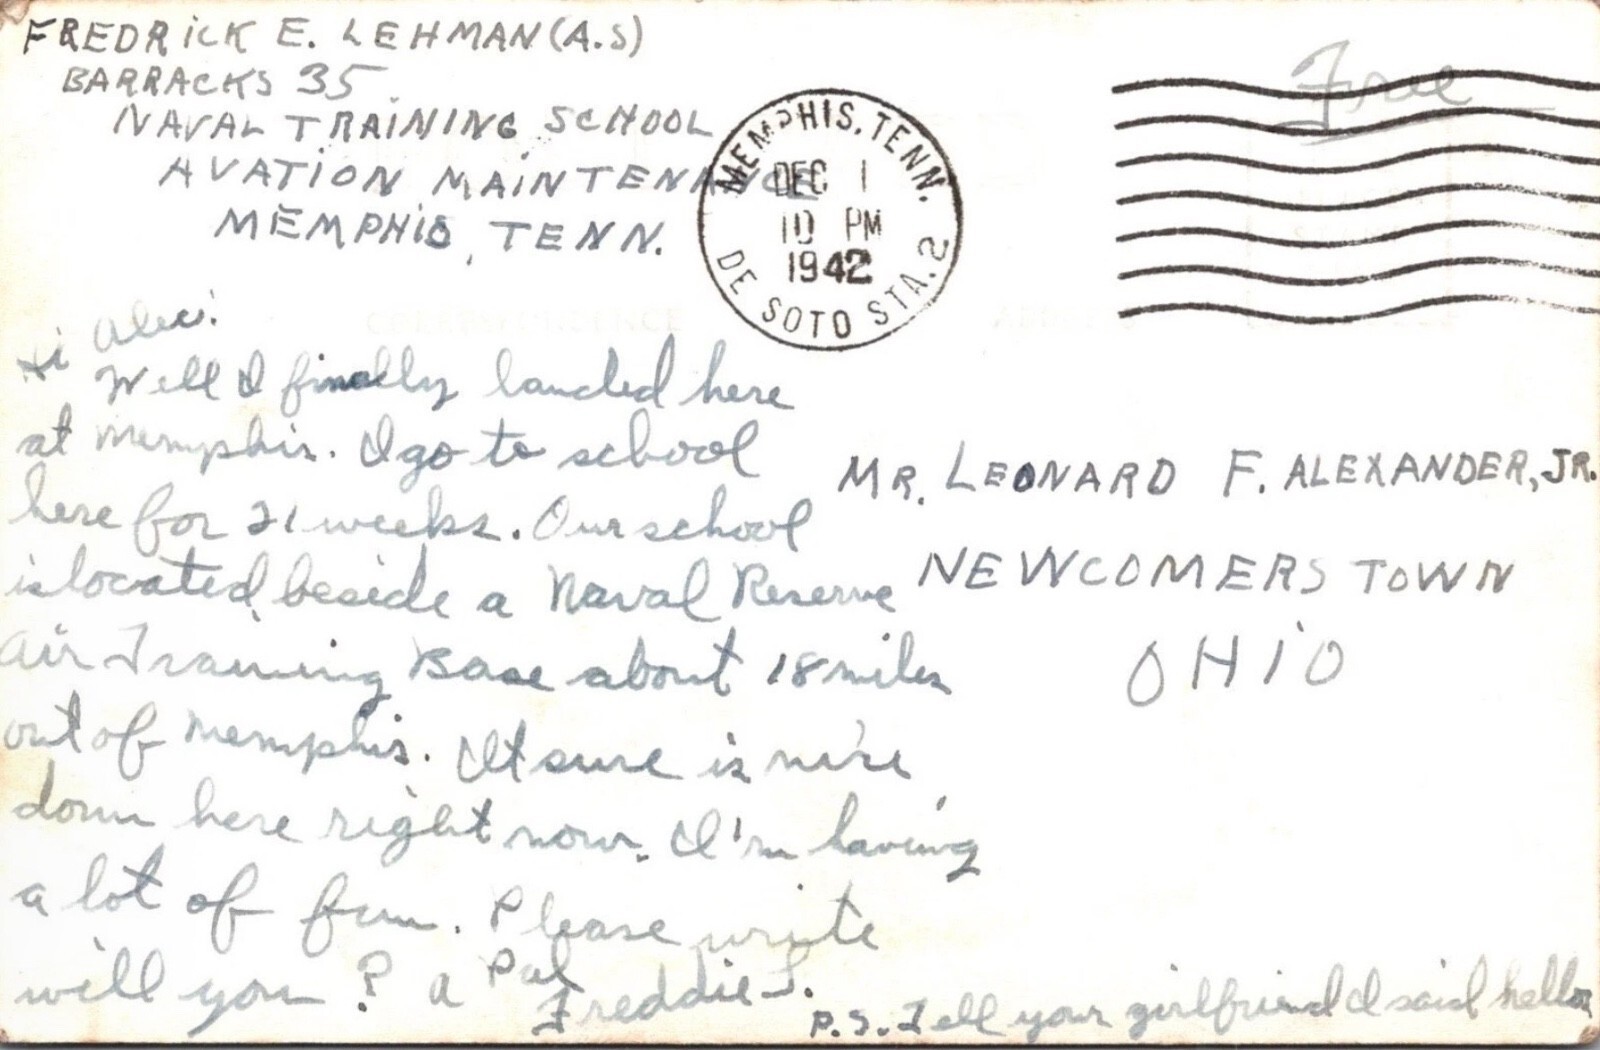 FREDRICK E. LEHMAN (A.S)
BARRACKS 35
NAVAL TRAINING SCHOOL
AVATION MAINTENANCE
MEMPHIS, TENN.
MEMPHIS, TENN.
DEC 1
10 PM
1942
DE SOTO STA. 2
Free
Hi Alex!
Well I finally landed here
at Memphis. I go to school
here for 21 weeks. Our school
is located beside a Naval Reserve
Air Training Base about 18 miles
out of Memphis. It sure is nice
down here right now. I'm having
a lot of fun. Please write
will you? a Pal
Freddie L.
P.S. Tell your girlfriend I said hello
MR. LEONARD F. ALEXANDER, JR.
NEWCOMERSTOWN
OHIO